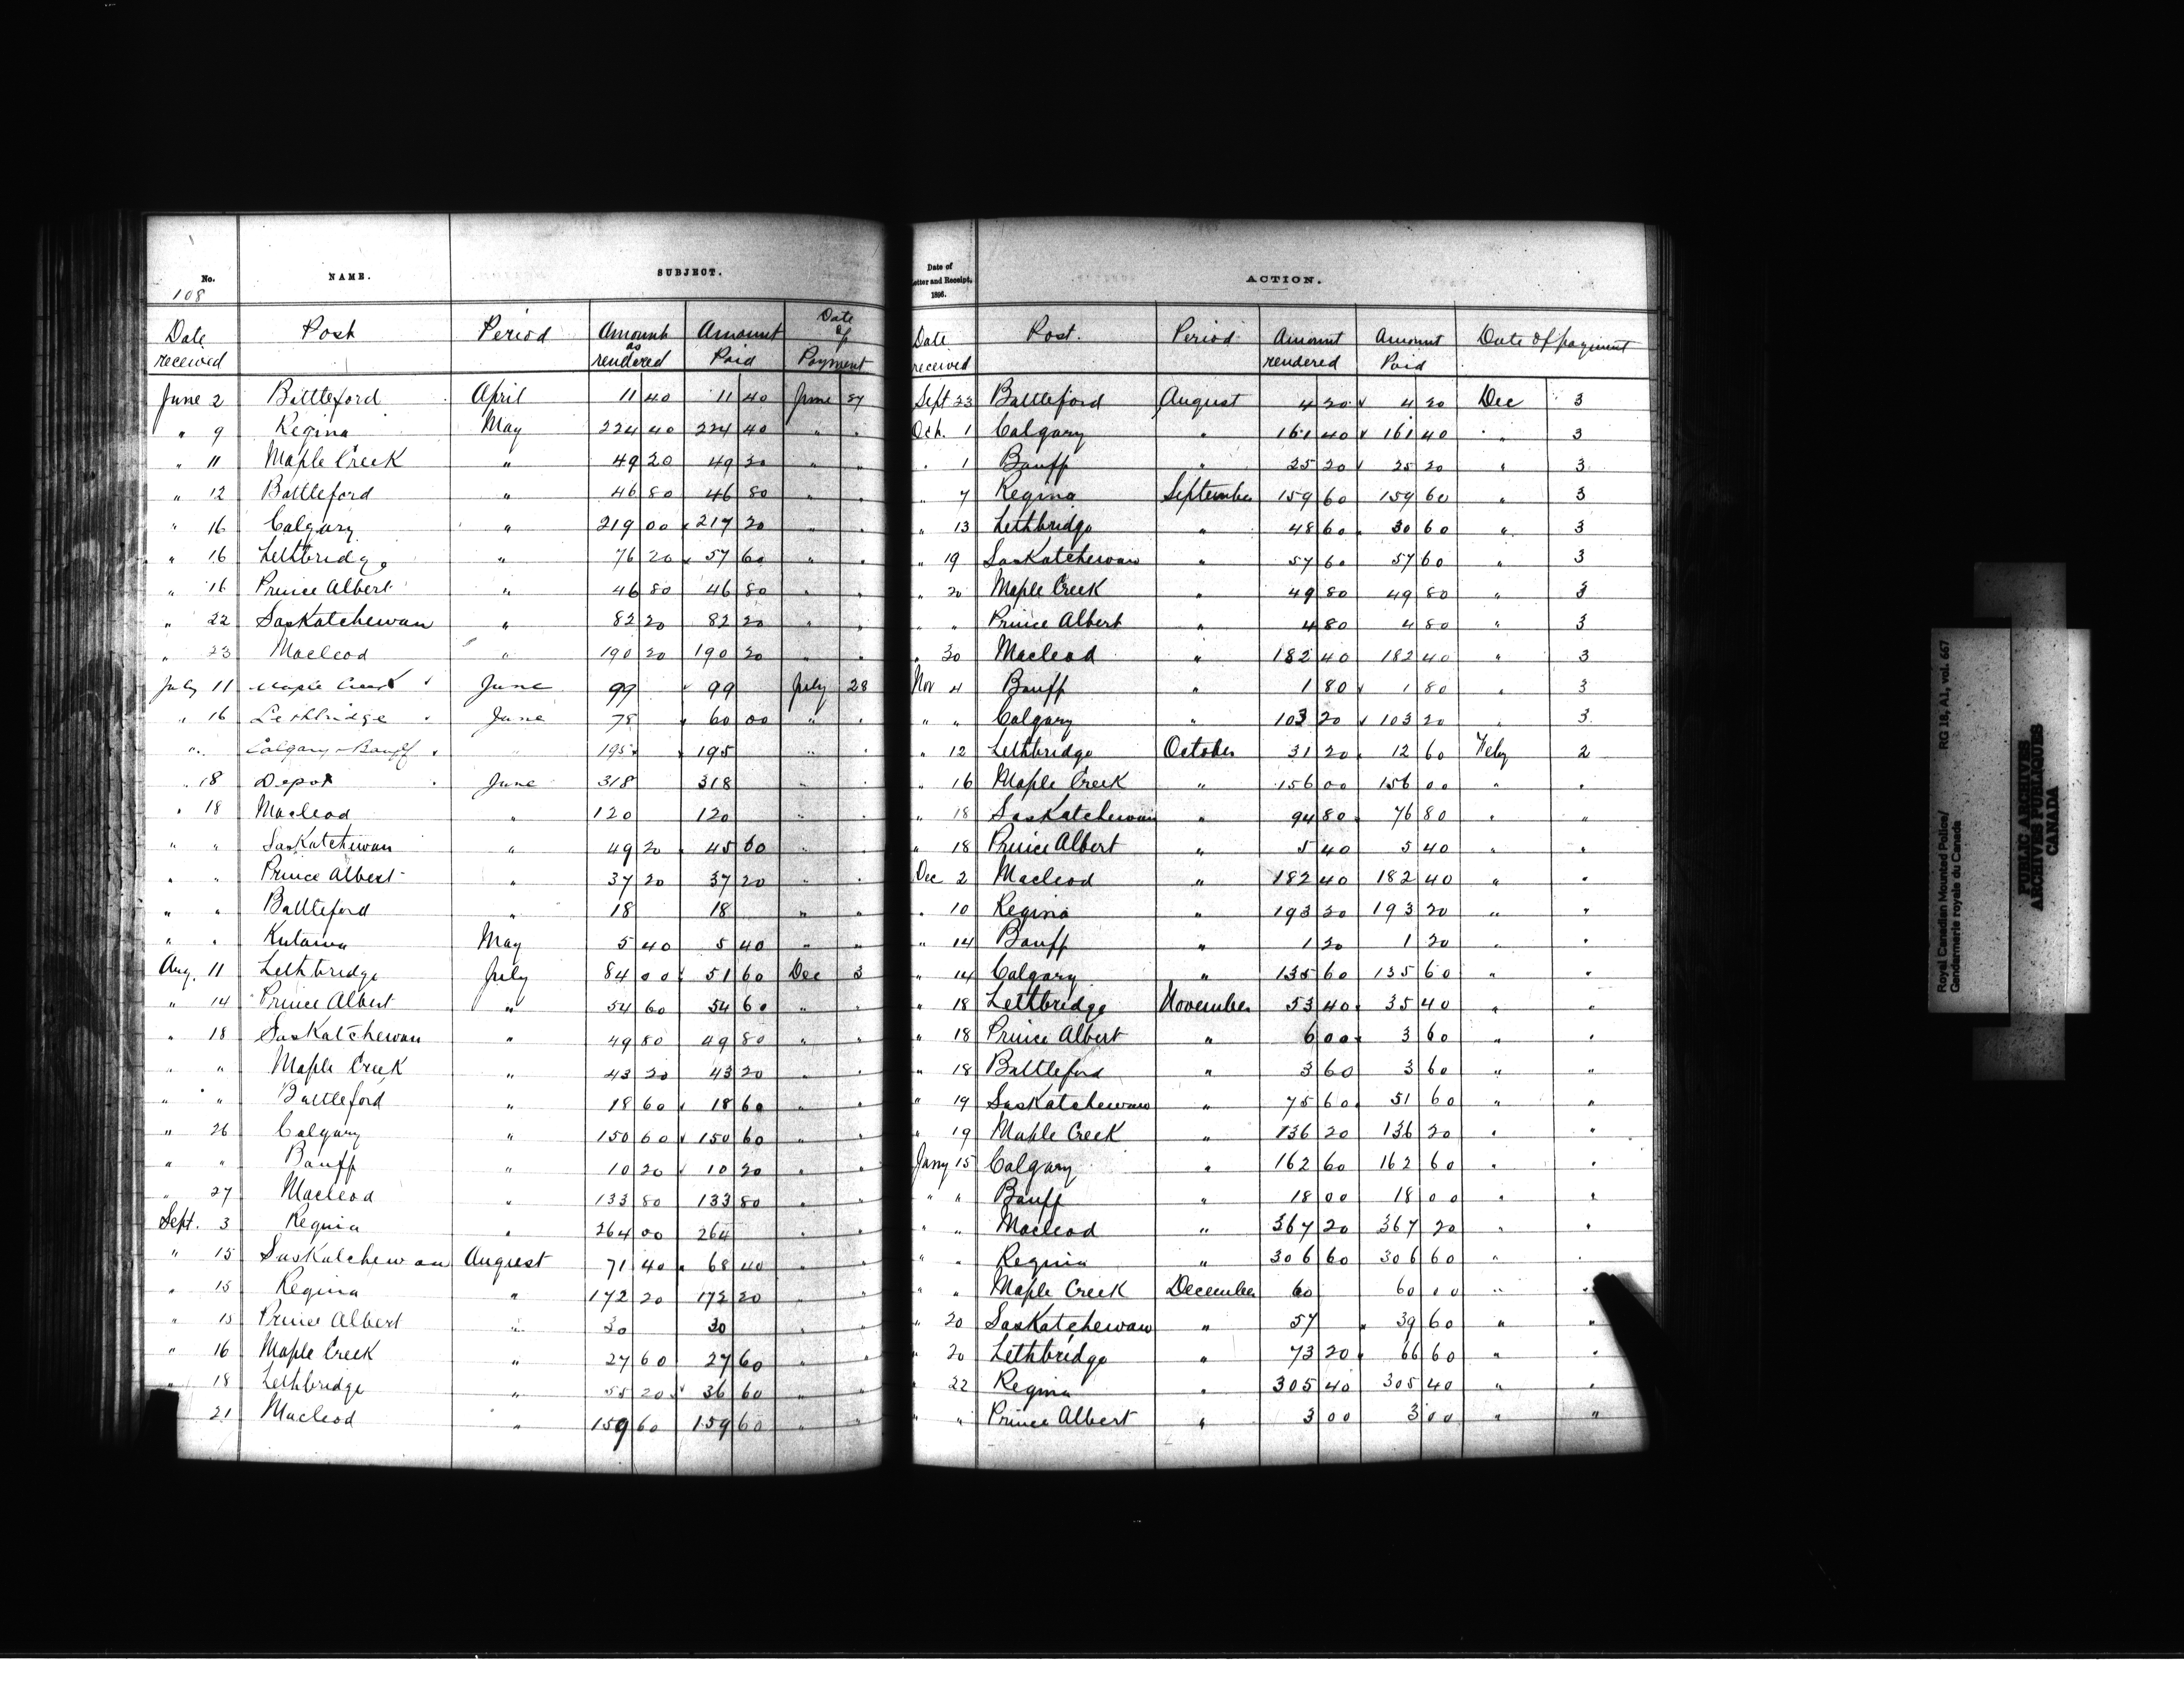 No. NAME. SUBJECT.
108
Date received Post Period Amount as rendered Amount Paid Date of Payment
June 2 Battleford April 11 40 11 40 June 27
" 9 Regina May 224 40 224 40 " "
" 11 Maple Creek " 49 20 49 20 " "
" 12 Battleford " 46 80 46 80 " "
" 16 Calgary " 219 00 217 20 " "
" 16 Lethbridge " 76 20 57 60 " "
" 16 Prince Albert " 46 80 46 80 " "
" 22 Saskatchewan " 82 20 82 20 " "
" 23 Macleod " 190 20 190 20 " "
July 11 Maple Creek June 99 99 July 28
" 16 Lethbridge June 78 60 00 " "
" Calgary & Banff " 195 195 " "
" 18 Depot June 318 318 " "
" 18 Macleod " 120 120 " "
" " Saskatchewan " 49 20 45 60 " "
" " Prince Albert " 37 20 37 20 " "
" " Battleford " 18 18 " "
" " Kutawa May 5 40 5 40 " "
Aug. 11 Lethbridge July 84 00 51 60 Dec 3
" 14 Prince Albert " 54 60 54 60 " "
" 18 Saskatchewan " 49 80 49 80 " "
" " Maple Creek " 43 20 43 20 " "
" " Battleford " 18 60 18 60 " "
" 26 Calgary " 150 60 150 60 " "
" " Banff " 10 20 10 20 " "
" 27 Macleod " 133 80 133 80 " "
Sept. 3 Regina " 264 00 264 " "
" 15 Saskatchewan August 71 40 68 40 " "
" 15 Regina " 172 20 172 20 " "
" 15 Prince Albert " 30 30 " "
" 16 Maple Creek " 27 60 27 60 " "
" 18 Lethbridge " 55 20 36 60 " "
21 Macleod " 159 60 159 60 " "
Date of
etter and Receipt, ACTION.
1896.
Date received Post. Period Amount rendered Amount Paid Date of payment
Sept 23 Battleford August 4 20 4 20 Dec 3
Oct. 1 Calgary " 161 40 161 40 " 3
" 1 Banff " 25 20 25 20 " 3
" 7 Regina September 159 60 159 60 " 3
" 13 Lethbridge " 48 60 30 60 " 3
" 19 Saskatchewan " 57 60 57 60 " 3
" 20 Maple Creek " 49 80 49 80 " 3
" " Prince Albert " 4 80 4 80 " 3
" 30 Macleod " 182 40 182 40 " 3
Nov 4 Banff " 1 80 1 80 " 3
" " Calgary " 103 20 103 20 " 3
" 12 Lethbridge October 31 20 12 60 Feby 2
" 16 Maple Creek " 156 00 156 00 " "
" 18 Saskatchewan " 94 80 76 80 " "
" 18 Prince Albert " 5 40 5 40 " "
Dec 2 Macleod " 182 40 182 40 " "
" 10 Regina " 193 20 193 20 " "
" 14 Banff " 1 20 1 20 " "
" 14 Calgary " 135 60 135 60 " "
" 18 Lethbridge November 53 40 35 40 " "
" 18 Prince Albert " 6 00 3 60 " "
" 18 Battleford " 3 60 3 60 " "
" 19 Saskatchewan " 75 60 51 60 " "
" 19 Maple Creek " 136 20 136 20 " "
Janry 15 Calgary " 162 60 162 60 " "
" " Banff " 18 00 18 00 " "
" " Macleod " 367 20 367 20 " "
" " Regina " 306 60 306 60 " "
" " Maple Creek December 60 60 00 " "
" 20 Saskatchewan " 57 39 60 " "
" 20 Lethbridge " 73 20 66 60 " "
" 22 Regina " 305 40 305 40 " "
" " Prince Albert " 3 00 3 00 " "
Royal Canadian Mounted Police/ RG 18, A1, vol. 667
Gendarmerie royale du Canada
PUBLIC ARCHIVES
ARCHIVES PUBLIQUES
CANADA